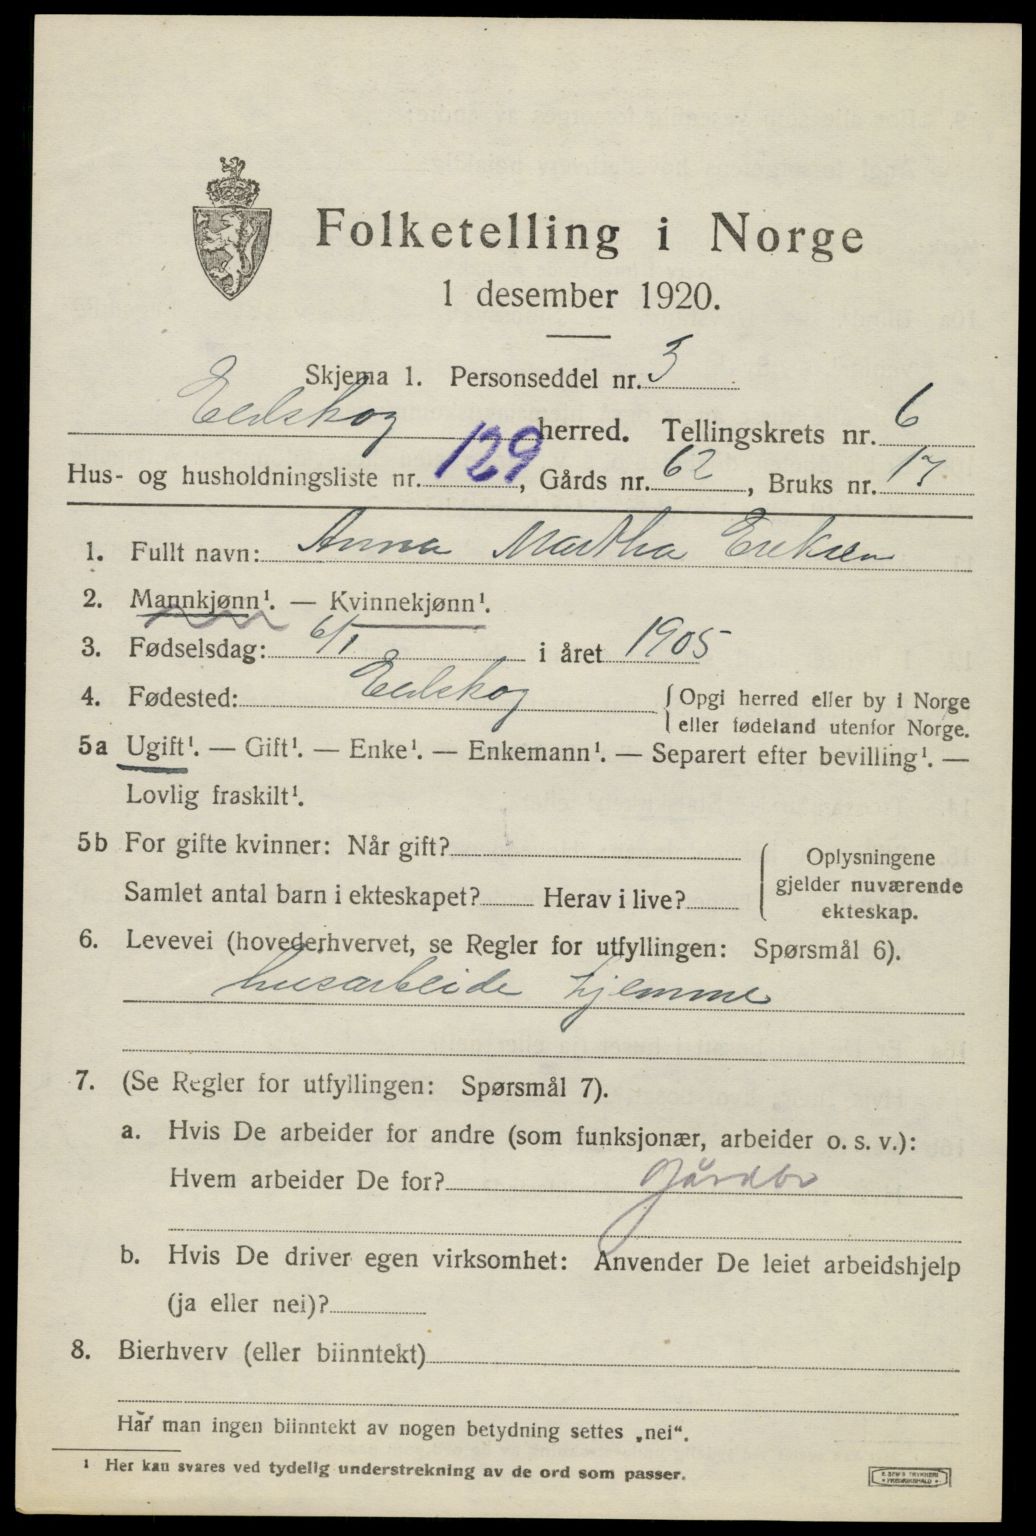 Folketelling i Norge
1 desember 1920.
Skjema 1. Personseddel nr. 3
Eidskog herred. Tellingskrets nr. 6
Hus- og husholdningsliste nr. 129, Gårds nr. 62, Bruks nr. 17
1. Fullt navn: Anna Martha Eriksen
2. Mannkjønn¹. — Kvinnekjønn¹.
3. Fødselsdag: 6/1 i året 1905
4. Fødested: Eidskog {Opgi herred eller by i Norge
eller fødeland utenfor Norge.
5a Ugift¹. — Gift¹. — Enke¹. — Enkemann¹. — Separert efter bevilling¹. —
Lovlig fraskilt¹.
5b For gifte kvinner: Når gift? Oplysningene
Samlet antal barn i ekteskapet? Herav i live? gjelder nuværende
ekteskap.
6. Levevei (hovederhvervet, se Regler for utfyllingen: Spørsmål 6).
husarbeide hjemme
7. (Se Regler for utfyllingen: Spørsmål 7).
a. Hvis De arbeider for andre (som funksjonær, arbeider o. s. v.):
Hvem arbeider De for? Gårdbr
b. Hvis De driver egen virksomhet: Anvender De leiet arbeidshjelp
(ja eller nei)?
8. Bierhverv (eller biinntekt)
Har man ingen biinntekt av nogen betydning settes „nei“.
¹ Her kan svares ved tydelig understrekning av de ord som passer.